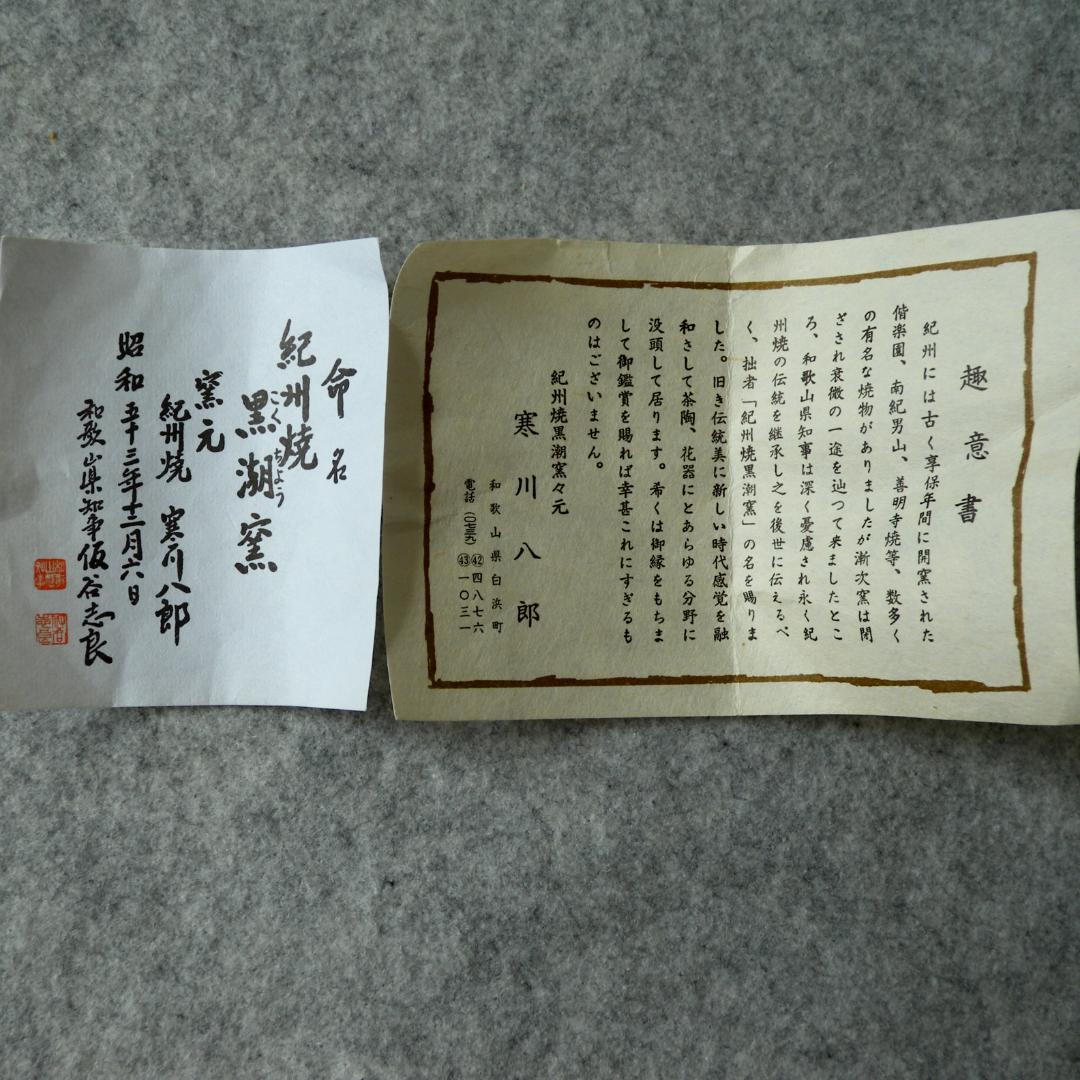 趣意書
紀州には古く享保年間に開窯された
偕楽園、南紀男山、善明寺焼等、数多く
の有名な焼物がありましたが漸次窯は閉
ざされ衰微の一途を辿つて来ましたとこ
ろ、和歌山県知事は深く憂慮され永く紀
州焼の伝統を継承し之を後世に伝えるべ
く、拙者「紀州焼黒潮窯」の名を賜りま
した。旧き伝統美に新しい時代感覚を融
和さして茶陶、花器にとあらゆる分野に
没頭して居ります。希くは御縁をもちま
して御鑑賞を賜れば幸甚これにすぎるも
のはございません。
紀州焼黒潮窯々元
寒川八郎
和歌山県白浜町
電話(〇七三九)㊷四八七六
㊸一〇三一
命名
紀州焼
黒潮窯
こくちょう
窯元
紀州焼 寒川八郎
昭和五十三年十二月六日
和歌山県知事仮谷志良